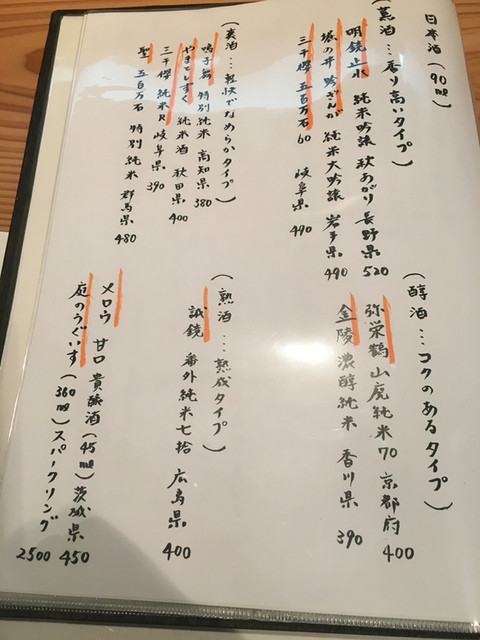 日本酒(90㎖)
(薫酒…香り高いタイプ)
明鏡止水 純米吟醸 秋あがり 長野県 520
堀の井 吟ぎんが 純米大吟醸 岩手県 490
三千櫻 五百万石60 岐阜県 490
(爽酒…軽快でなめらかタイプ)
鳴子舞 特別純米 高知県 380
やまとしずく 純米酒 秋田県 400
三千櫻 純米R 岐阜県 390
聖 五百万石 特別純米 群馬県 480
(醇酒…コクのあるタイプ)
弥栄鶴 山廃純米70 京都府 400
金陵 濃醇純米 香川県 390
(熟酒…熟成タイプ)
誠鏡 番外純米七拾 広島県 400
メロウ 甘口 貴醸酒(45㎖) 茨城県 450
庭のうぐいす (360㎖) スパークリング 2500